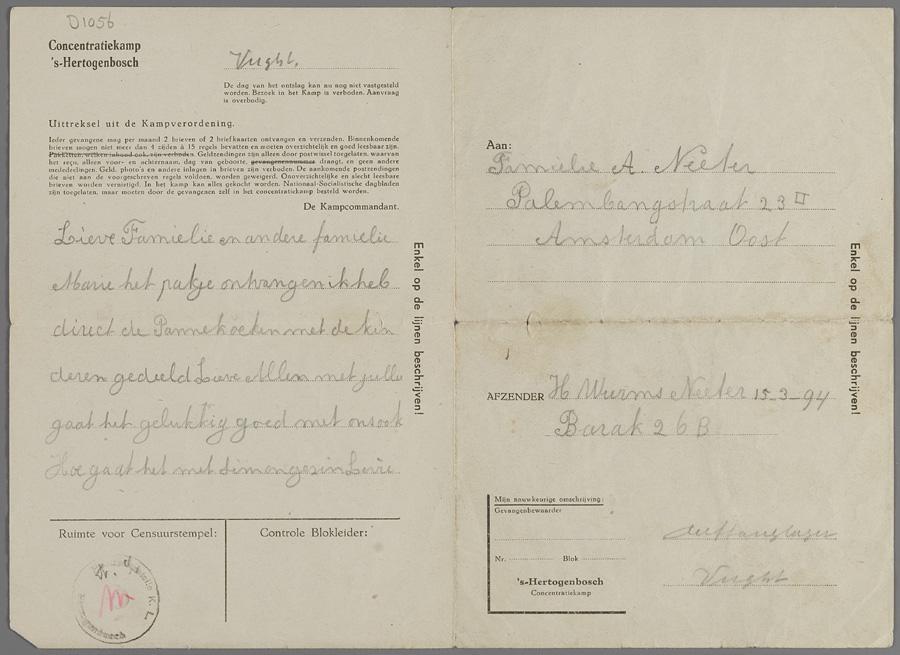 D1056
Concentratiekamp
's-Hertogenbosch
Vught.
De dag van het ontslag kan nu nog niet vastgesteld
worden. Bezoek in het Kamp is verboden. Aanvraag
is overbodig.
Uittreksel uit de Kampverordening.
Ieder gevangene mag per maand 2 brieven of 2 briefkaarten ontvangen en verzenden. Binnenkomende
brieven mogen niet meer dan 4 zijden à 15 regels bevatten en moeten overzichtelijk en goed leesbaar zijn.
Pakketten, welken inhoud ook, zijn verboden. Geldzendingen zijn alleen door postwissel toegelaten, waarvan
het reçu, alleen voor- en achternaam, dag van geboorte, gevangenennummer draagt, en geen andere
mededeelingen. Geld, photo's en andere inlagen in brieven zijn verboden. De aankomende postzendingen
die niet aan de voorgeschreven regels voldoen, worden geweigerd. Onoverzichtelijke en slecht leesbare
brieven worden vernietigd. In het kamp kan alles gekocht worden. Nationaal-Socialistische dagbladen
zijn toegelaten, maar moeten door de gevangenen zelf in het concentratiekamp besteld worden.
De Kampcommandant.
Lieve Famielie en andere famielie
Marie het pakje ontvangen ik heb
direct de Pannekoeken met de kin
deren gedeeld Lieve Allen met jullie
gaat het gelukkig goed met ons ook
Hoe gaat het met Simon gezin Lieve
Enkel op de lijnen beschrijven!
Ruimte voor Censuurstempel:
Controle Blokleider:
K. L.
Aan:
Famielie A. Neeter
Palembangstraat 23 II
Amsterdam Oost
Enkel op de lijnen beschrijven!
AFZENDER H Wurms Neeter 15-3-94
Barak 26B
Mijn nauwkeurige omschrijving:
Gevangenbewaarder
Nr. Blok
's-Hertogenbosch
Concentratiekamp
Auffanglager
Vught